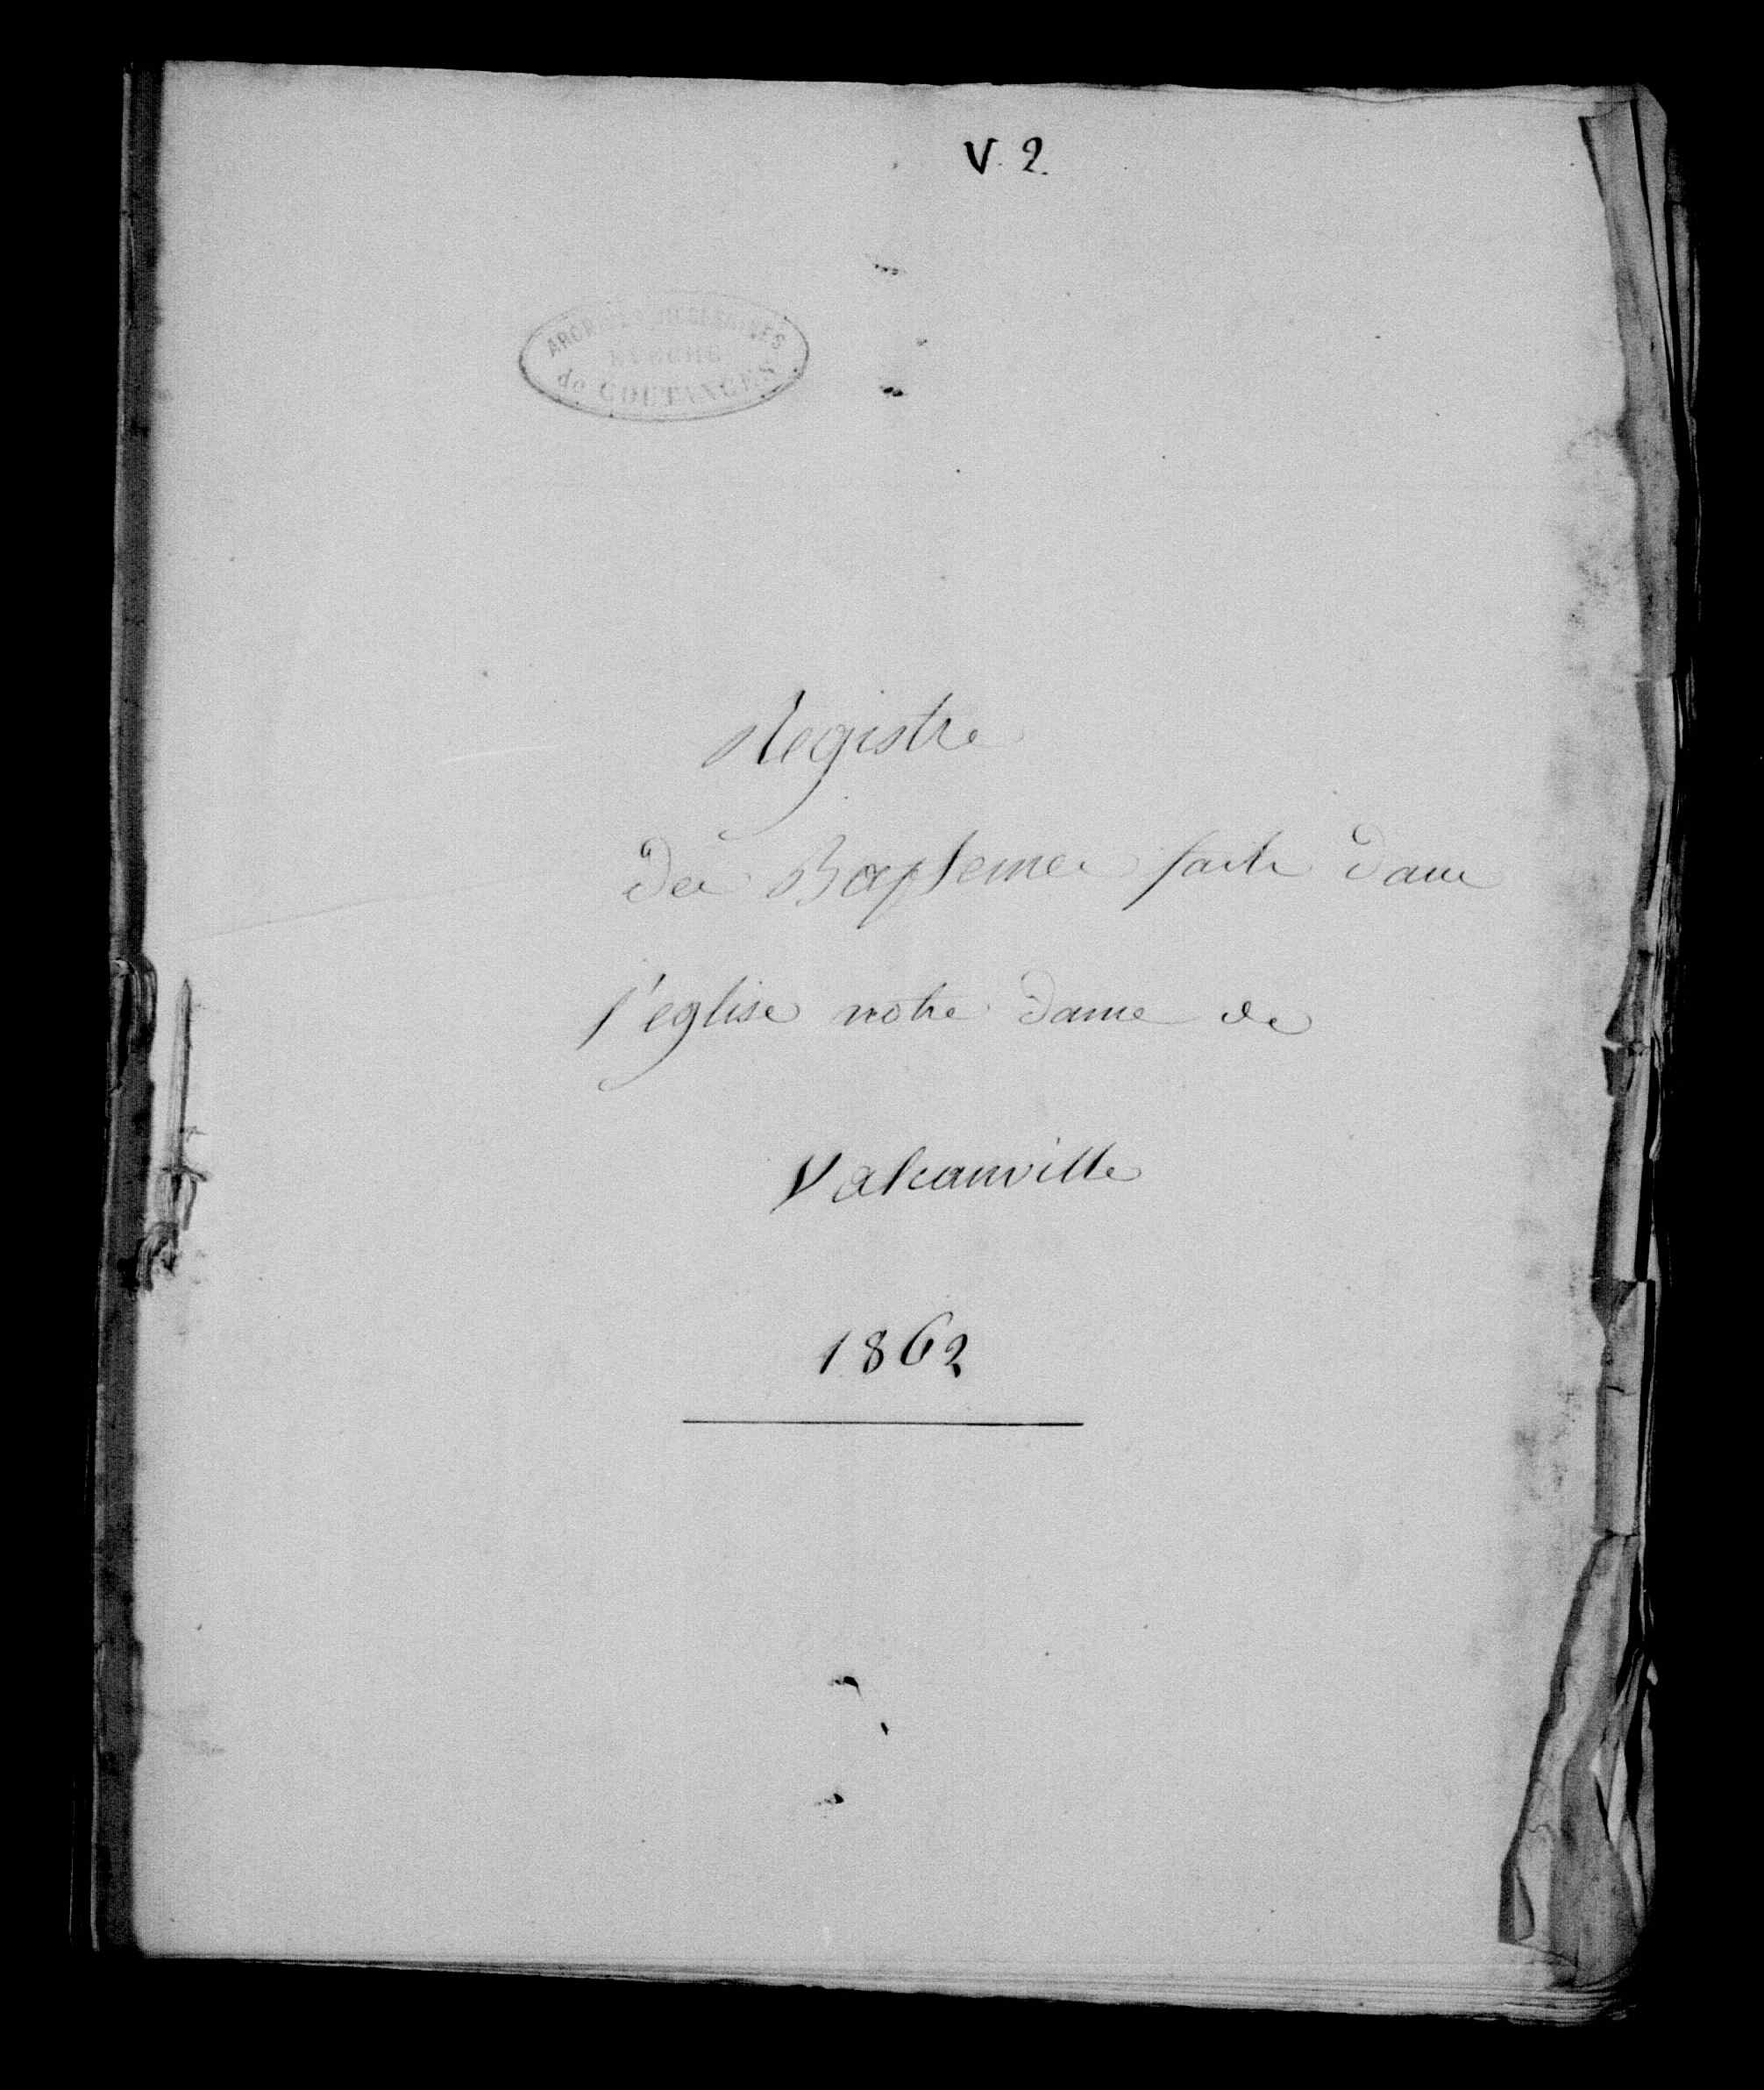 V. 2.
ARCHIVES DIOCESAINES
EVECHE
de COUTANCES
Registre
des Baptemes faits dans
l'eglise notre dame de
Valcanville
1862